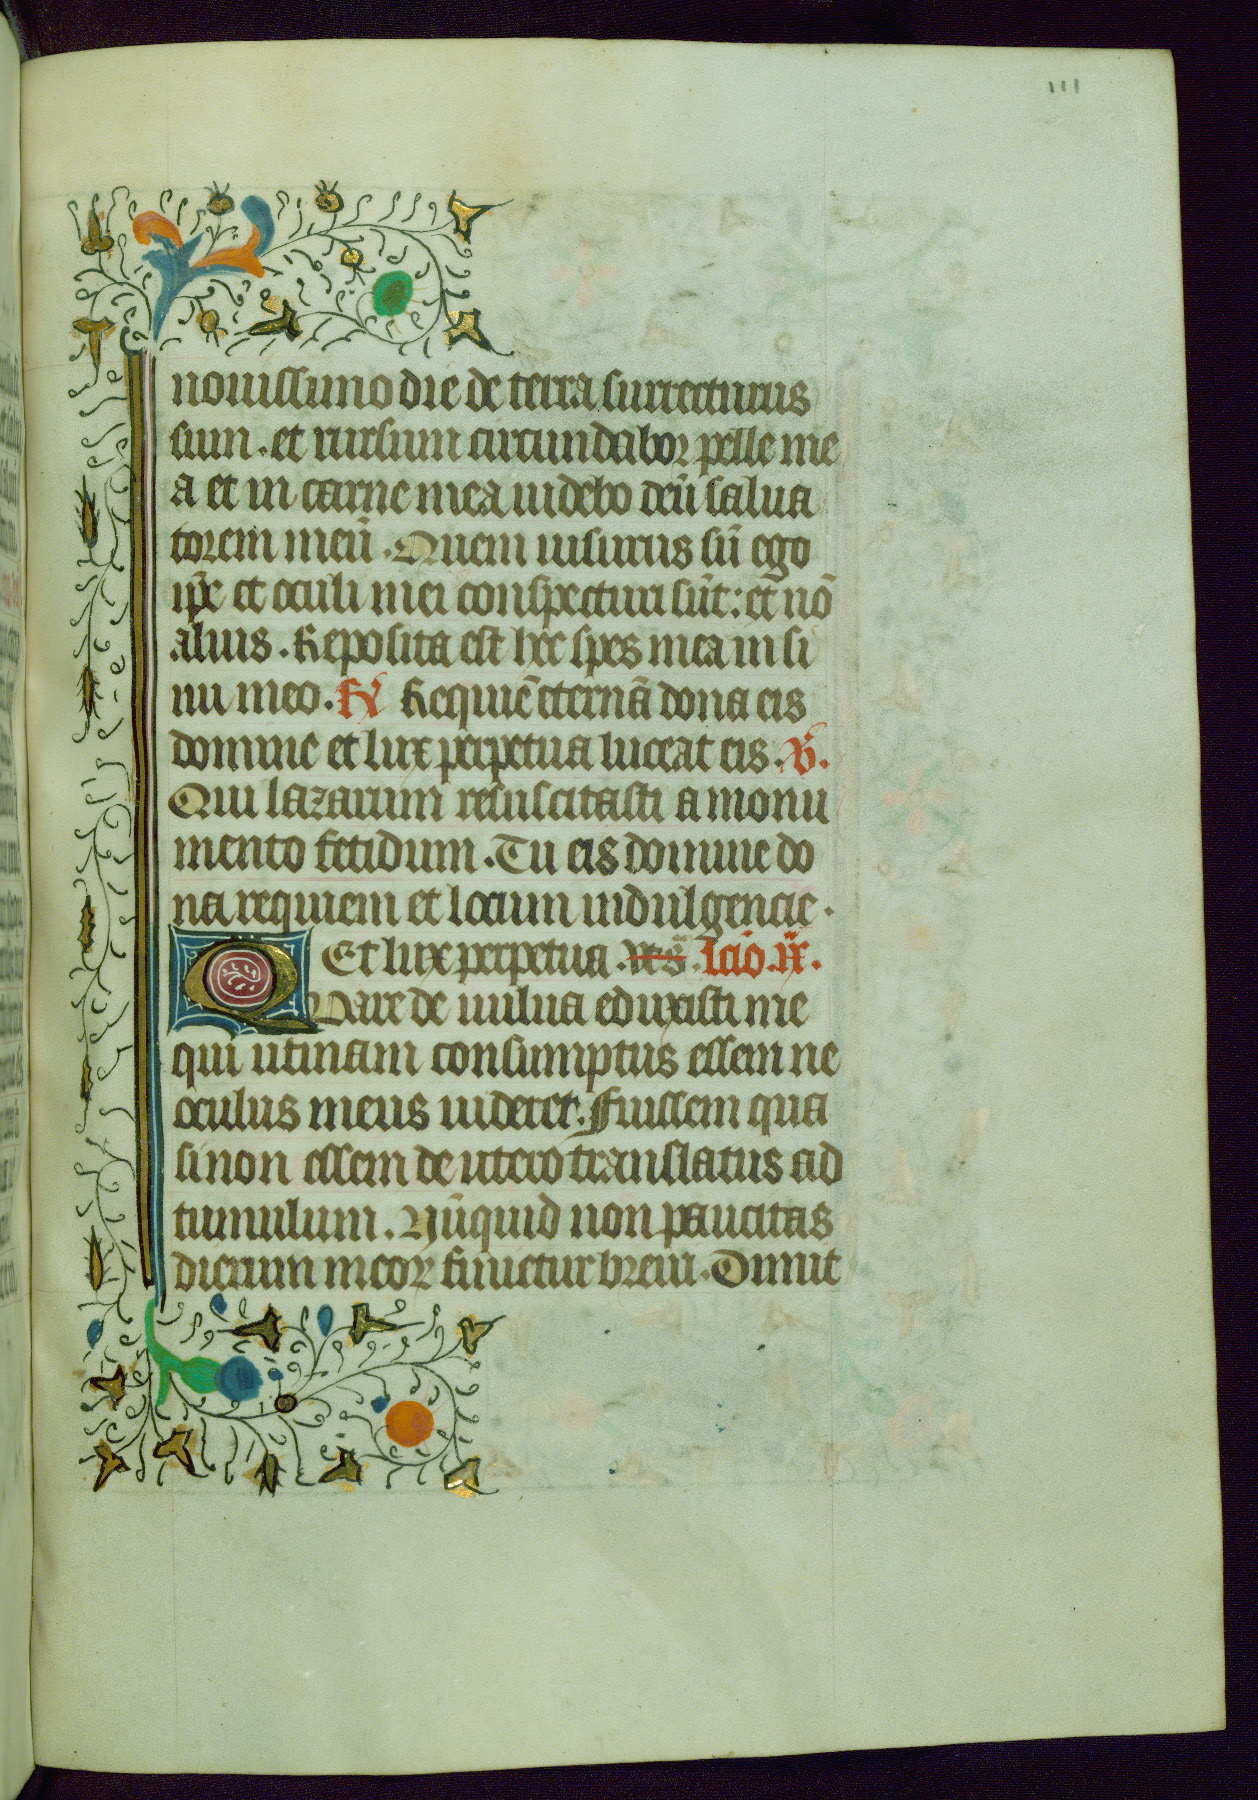 111
nouissimo die de terra surrecturus
sum. et rursum circumdabor pelle me
a et in carne mea uidebo deū salua
torem meū. Quem uisurus sū ego
ip̄e et oculi mei conspecturi sūt: et nō
alius. Reposita est hec spes mea in si
nu meo. R̸ Requiē eternā dona eis
domine et lux perpetua luceat eis. V̸.
Qui lazarum resuscitasti a monu
mento fetidum. Tu eis domine do
na requiem et locum indulgencie.
Et lux perpetua. Lc̄io .ix.
Quare de uulua eduxisti me
qui utinam consumptus essem ne
oculus meus uideret. Fuissem qua
si non essem de utero translatus ad
tumulum. Nūquid non paucitas
dierum meoꝝ finietur breui. Dimit